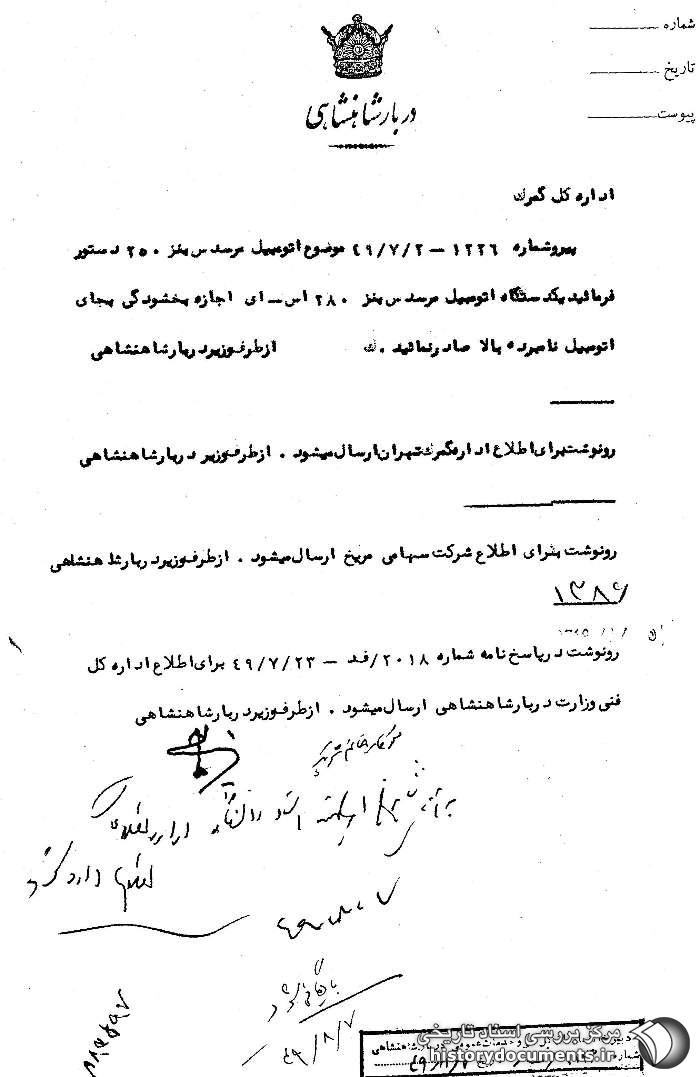 شماره
تاریخ
پیوست
دربار شاهنشاهی
اداره کل گمرک
پیروشماره ۱۲۲۶ – ۴۹/۷/۲ موضوع اتومبیل مرسدس بنز ۲۵۰ دستور
فرمائید یکدستگاه اتومبیل مرسدس بنز ۲۸۰ اس – ای اجازه بخشودگی بجای
اتومبیل نامبرده بالا صادر نمائید . ک از طرف وزیر دربار شاهنشاهی
رونوشت برای اطلاع اداره گمرک تهران ارسال میشود . از طرف وزیر دربار شاهنشاهی
رونوشت برای اطلاع شرکت سهامی مریخ ارسال میشود . از طرف وزیر دربار شاهنشاهی
۱۳۸۶
رونوشت در پاسخ نامه شماره ۲۰۱۸/فد – ۴۹/۷/۲۳ برای اطلاع اداره کل
فنی وزارت دربار شاهنشاهی ارسال میشود . از طرف وزیر دربار شاهنشاهی
دارد
۴۹/۸/۷
بایگانی شود
۴۹/۸/۷
مرکز بررسی اسناد تاریخی
historydocuments.ir